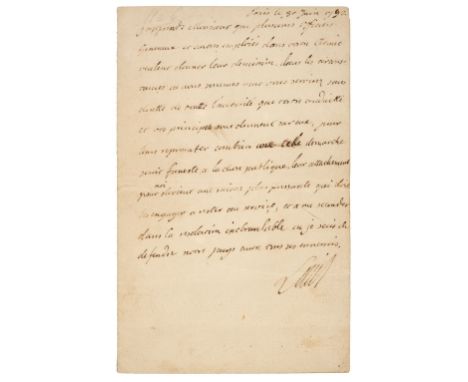 Paris le 30 Juin 1792
J'apprends Monsieur que plusieurs officiers
généraux et autres employés dans votre Armée
veulent donner leur démission, dans les circons-
tances où nous sommes
de toute l'autorité que votre conduite
et vos principes vous donnent pour
leur représenter combien une telle démarche
seroit funeste à la chose publique, leur attachement
pour moi une raison plus pressante qui doit
les engager à rester au service, et à me seconder
dans la résolution inébranlable où je suis de
défendre notre pays contre tous ses ennemis.
Louis